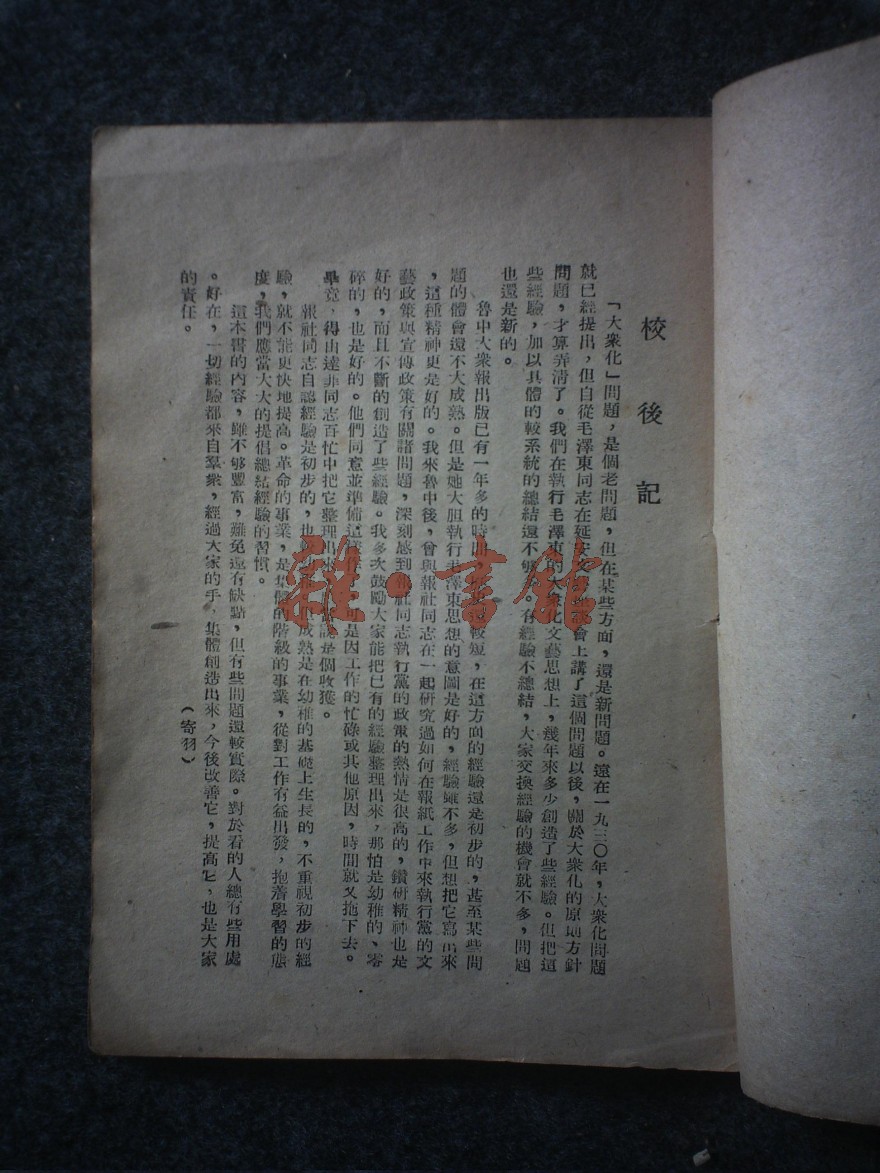 校後記
「大衆化」問題，是個老問題，但在某些方面，還是新問題。遠在一九三〇年，大衆化問題
就已經提出，但自從毛澤東同志在延安文藝座談會上講了這個問題以後，關於大衆化的原則方針
問題，才算弄清了。我們在執行毛澤東的大衆化文藝思想上，幾年來多少創造了些經驗。但把這
些經驗，加以具體的較系統的總結還不够。有經驗不總結，大家交換經驗的機會就不多，問題
也還是新的。
魯中大衆報出版已有一年多的時間，較短，在這方面的經驗還是初步的，甚至某些問
題的體會還不大成熟。但是她大胆執行毛澤東思想的意圖是好的，經驗雖不多，但想把它寫出來
，這種精神更是好的。我來魯中後，曾與報社同志在一起研究過如何在報紙工作中來執行黨的文
藝政策與宣傳政策有關諸問題，深刻感到報社同志執行黨的政策的熱情是很高的，鑽研精神也是
好的，而且不斷的創造了些經驗。我多次鼓勵大家能把已有的經驗整理出來，那怕是幼稚的、零
碎的，也是好的。他們同意並準備這樣作了，可是因工作的忙碌或其他原因，時間就又拖下去。
畢竟，得由達非同志百忙中把它整理出來，是個收獲。
報社同志自認經驗是初步的，也較成熟是在幼稚的基礎上生長的，不重視初步的經
驗，就不能更快地提高。革命的事業，是集體的階級的事業，從對工作有益出發，抱着學習的態
度，我們應當大大的提倡總結經驗的習慣。
這本書的內容，雖不够豐富，難免還有缺點，但有些問題還較實際。對於看的人總有些用處
。好在，一切經驗都來自羣衆，經過大家的手，集體創造出來，今後改善它，提高它，也是大家
的責任。
（寄羽）
雜·書館